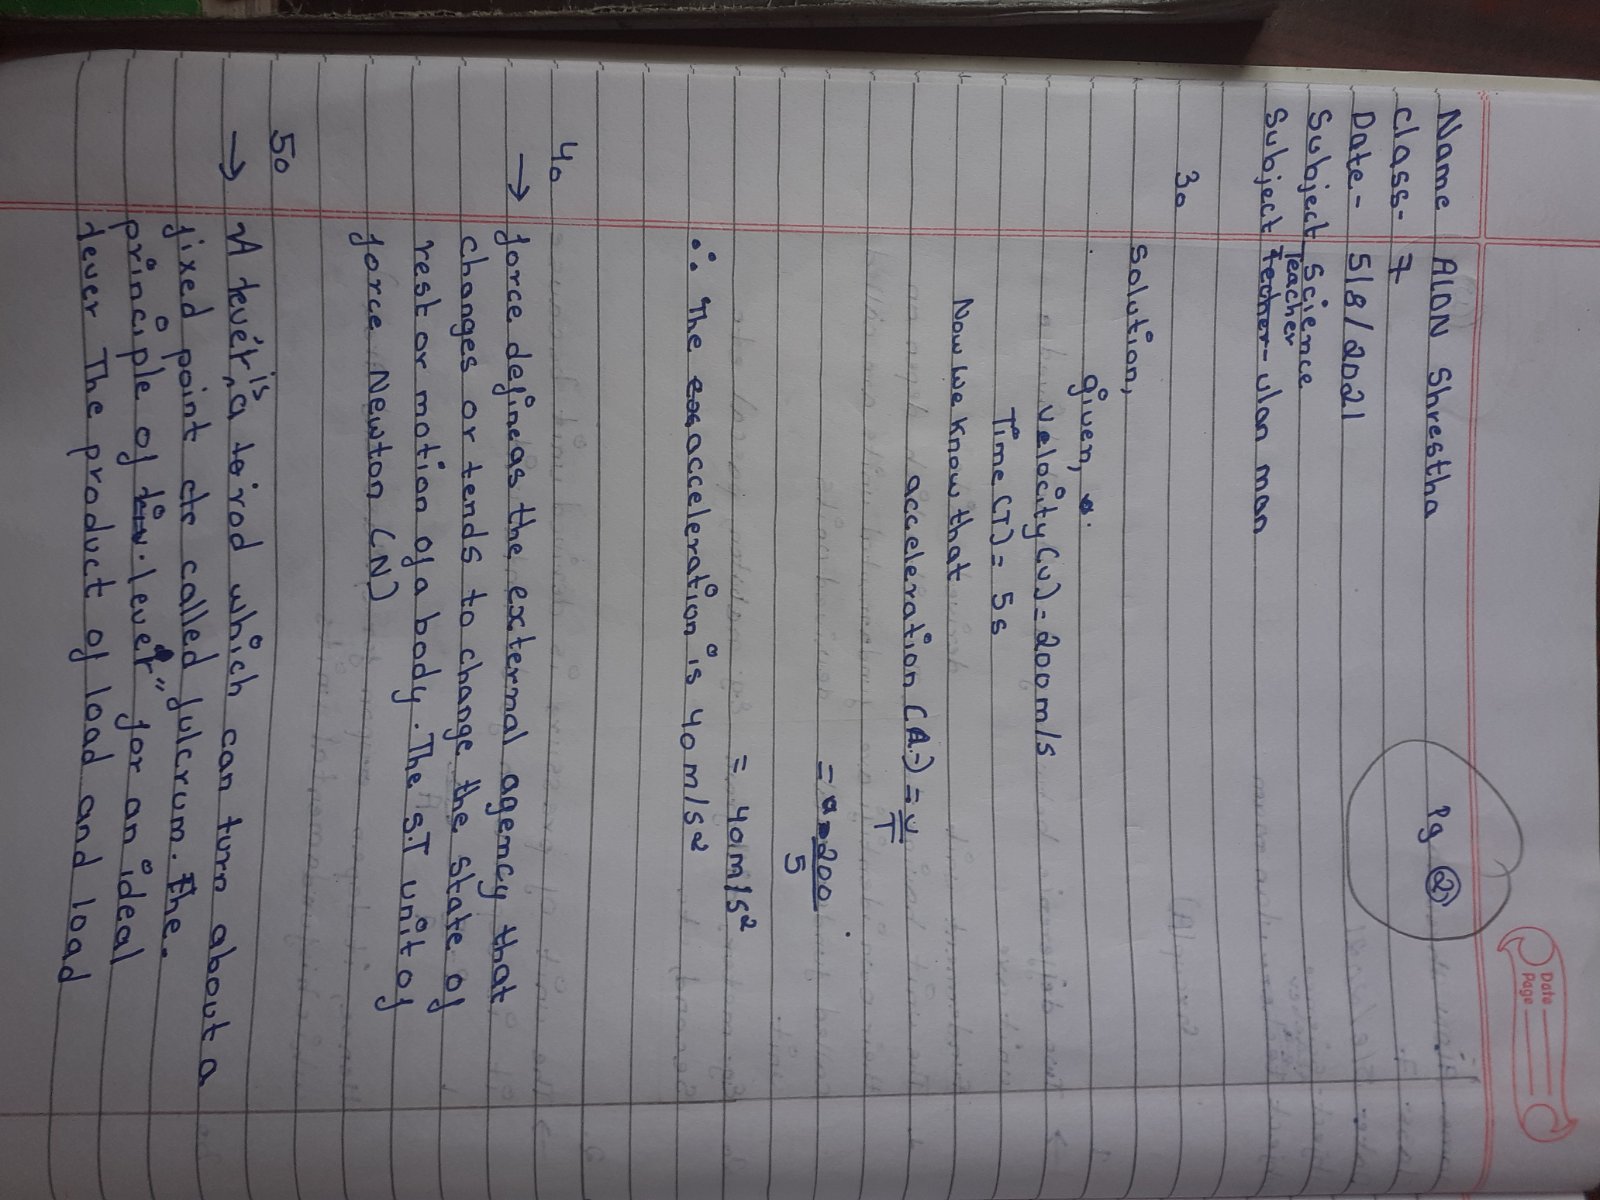 Date
Page
Pg 2
Name AIDN Shrestha
Class- 7
Date- 5/8/2021
Subject Science
Teacher
Subject techer- ulan man
3.
Solution,
given,
Velocity (v) = 200 m/s
Time (T) = 5s
Now we know that
acceleration (A) = v/T
= 200/5
= 40 m/s²
∴ The acceleration is 40 m/s²
4.
→ force define as the external agency that
changes or tends to change the state of
rest or motion of a body. The S.I unit of
force Newton (N)
5.
→ A lever is a rod which can turn about a
fixed point is called fulcrum. The
principle of lever" for an ideal
lever The product of load and load